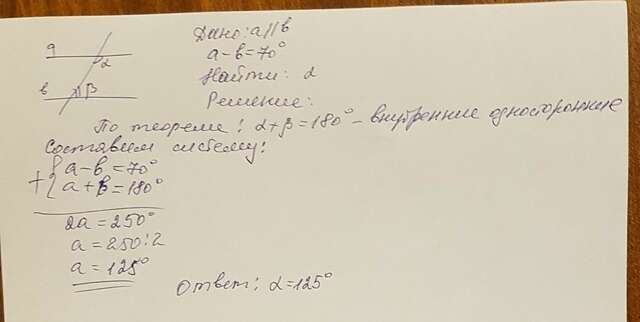 Дано: a||в
a
α
a-в=70°
в
β
Найти: α
Решение:
По теореме: α+β=180° - внутренние односторонние
Составим систему:
+{ a-в=70°
a+в=180°
2a=250°
a=250:2
a=125°
Ответ: α=125°